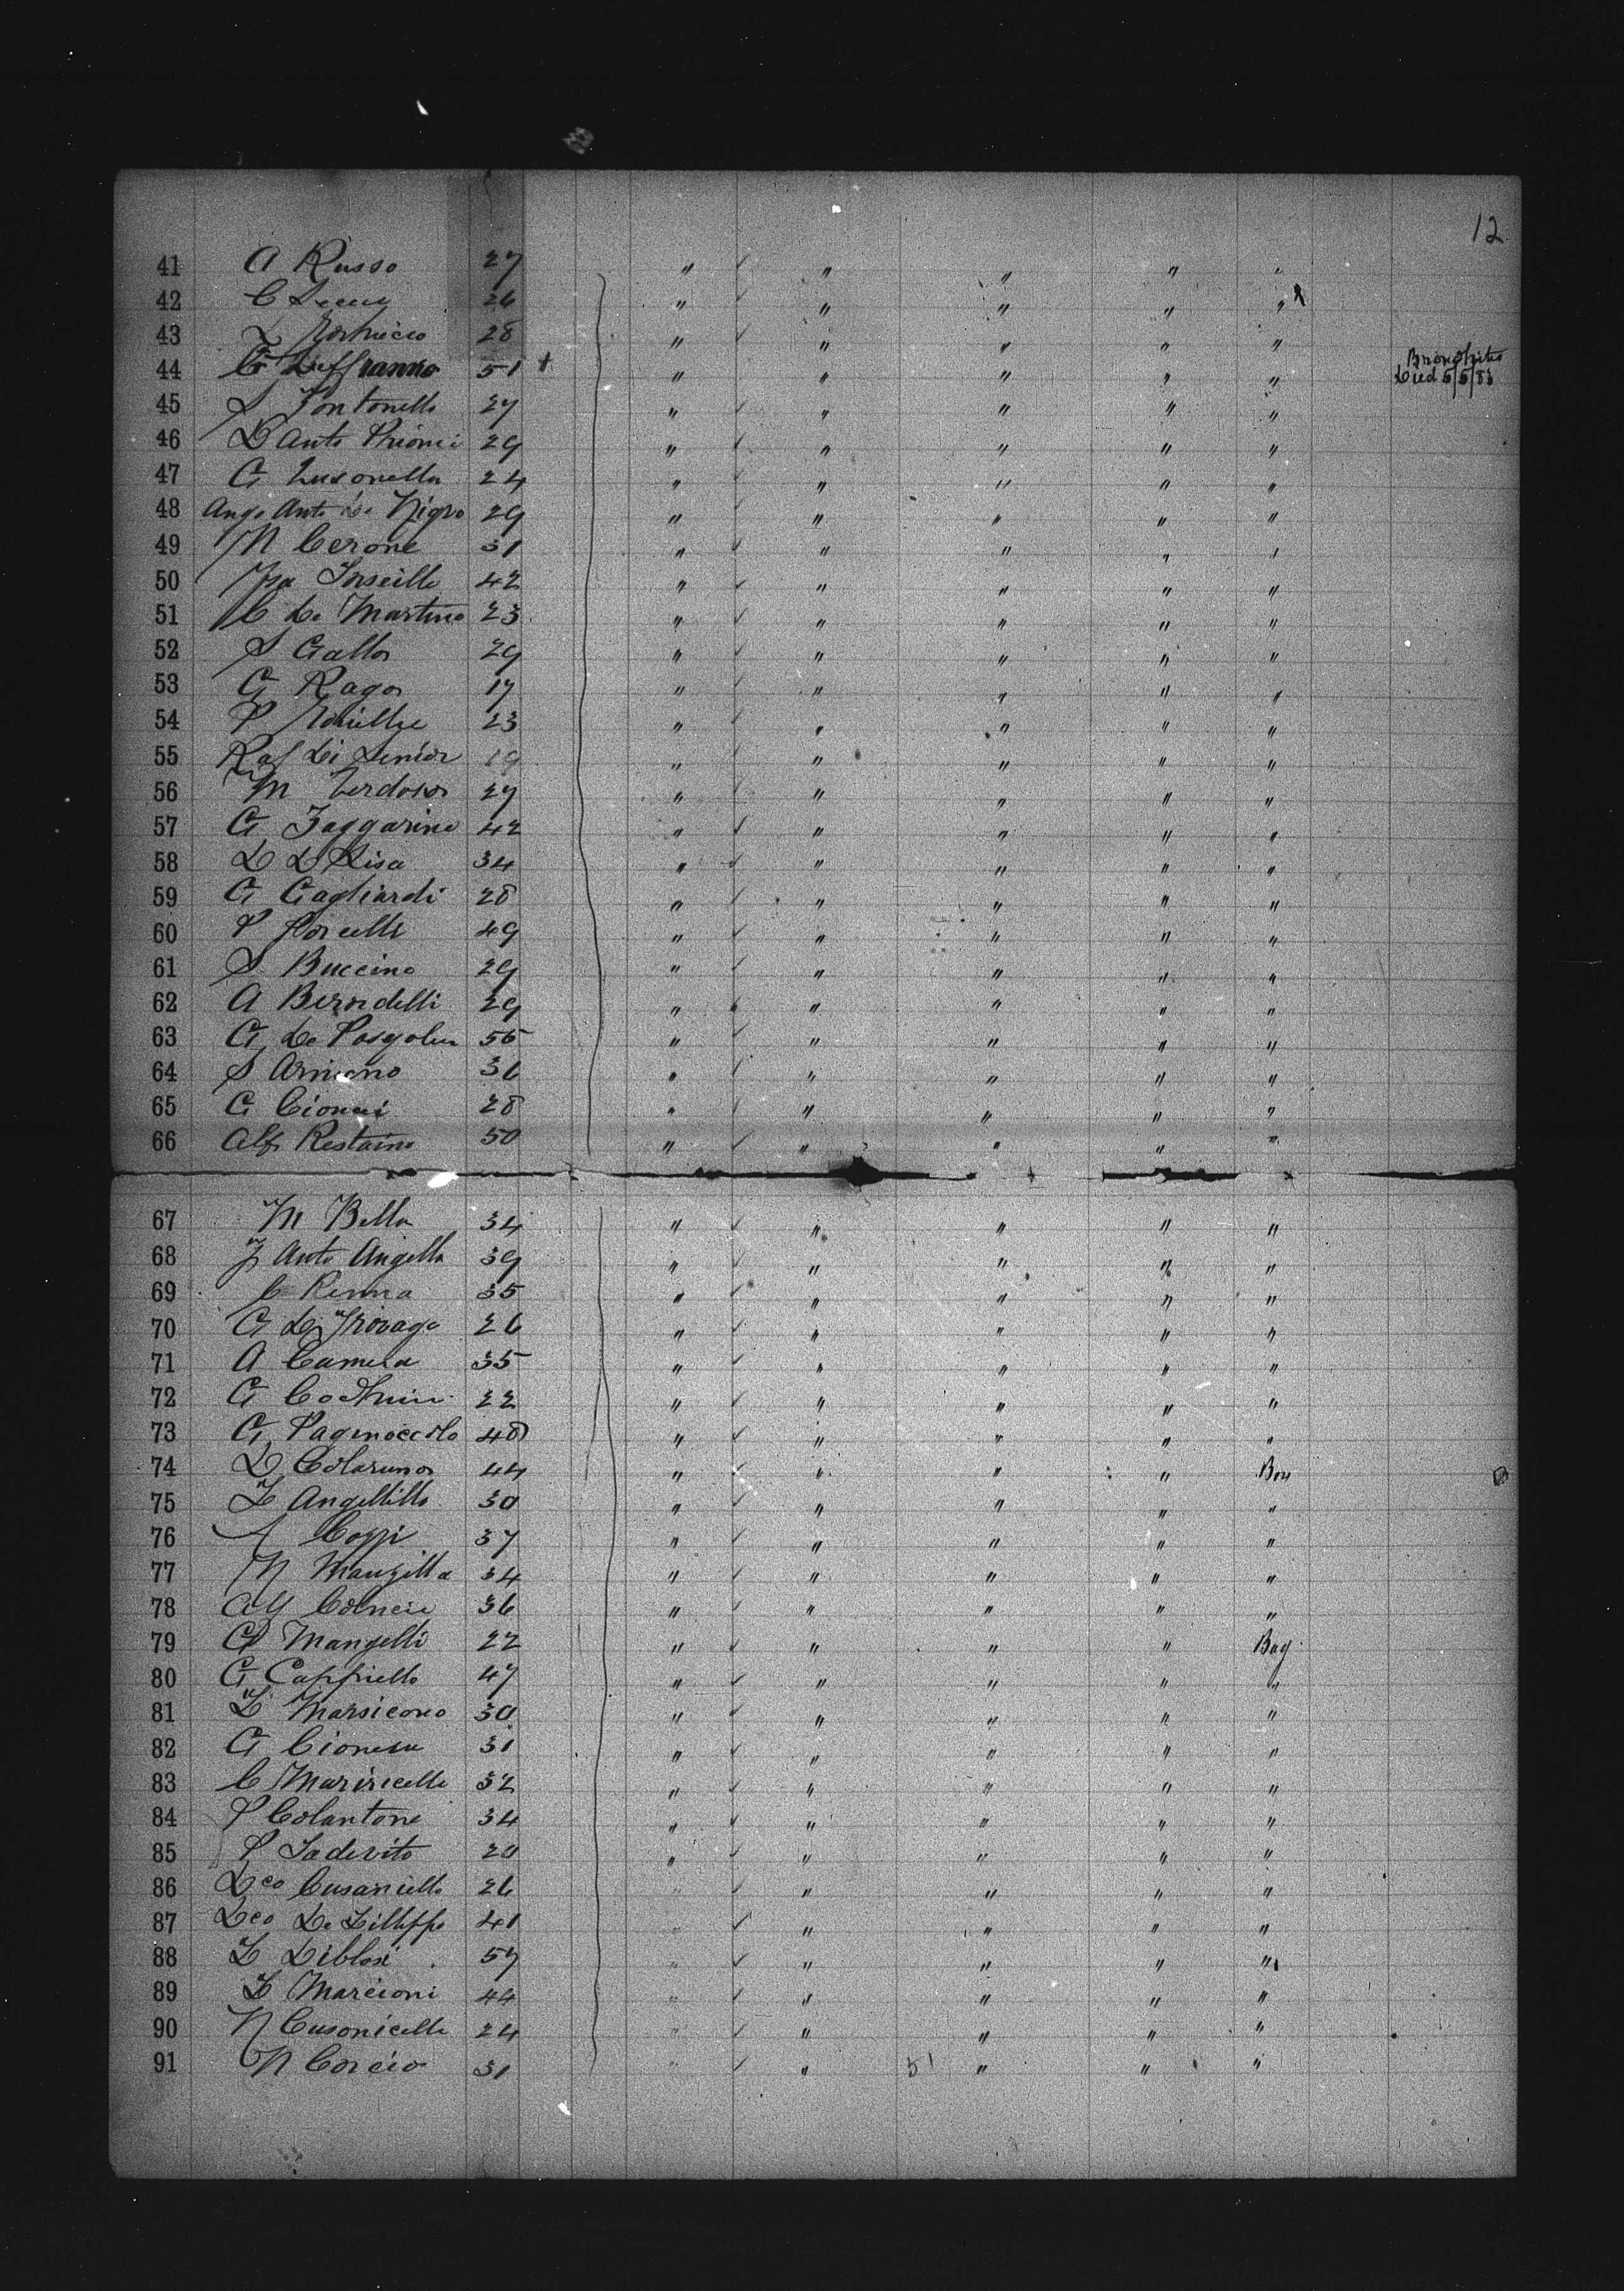 12
41 A Russo 27 " " " " "
42 C 26 " " " " "
43 L 28 " " " " "
44 G Laffranno 51 + " " " " " Bronchitis Died 5/5/83
45 S Fontonello 27 " " " " "
46 D Anto 29 " " " " "
47 G Lusonella 24 " " " " "
48 Ango Anto De Nigro 29 " " " " "
49 N Cerone 31 " " " " "
50 42 " " " " "
51 C De Martino 23 " " " " "
52 S Gallo 29 " " " " "
53 G Rago 17 " " " " "
54 P 23 " " " " "
55 Raf Di 19 " " " " "
56 M Verdoso 27 " " " " "
57 G Zaggarino 42 " " " " "
58 D D Lisa 34 " " " " "
59 G Gagliardi 28 " " " " "
60 P 49 " " " " "
61 S Buccino 29 " " " " "
62 A Berndelli 29 " " " " "
63 G De 56 " " " " "
64 S Armeno 36 " " " " "
65 G 28 " " " " "
66 Alf Restaino 50 " " " " "
67 M Bella 34 " " " " "
68 F Anto Angella 39 " " " " "
69 C Renna 35 " " " " "
70 G 26 " " " " "
71 A Camera 35 " " " " "
72 G 22 " " " " "
73 G Paginoccolo 48 " " " " "
74 D Colaruno 44 " " " " Bou
75 F Angellillo 30 " " " " "
76 37 " " " " "
77 N Mangilla 34 " " " " "
78 Alf 36 " " " " "
79 G Mangelli 22 " " " " Bag
80 G Cappiello 47 " " " " "
81 F Marsicono 30 " " " " "
82 G Cionesu 31 " " " " "
83 C Marinicelle 32 " " " " "
84 P Colantone 34 " " " " "
85 P Iadevito 20 " " " " "
86 Dco Cusaniello 26 " " " " "
87 Dco De Fillippo 41 " " " " "
88 F Diblasi 57 " " " " "
89 F Marcioni 44 " " " " "
90 N Cusonicelle 24 " " " " "
91 N Corcio 31 " " 51 " " "